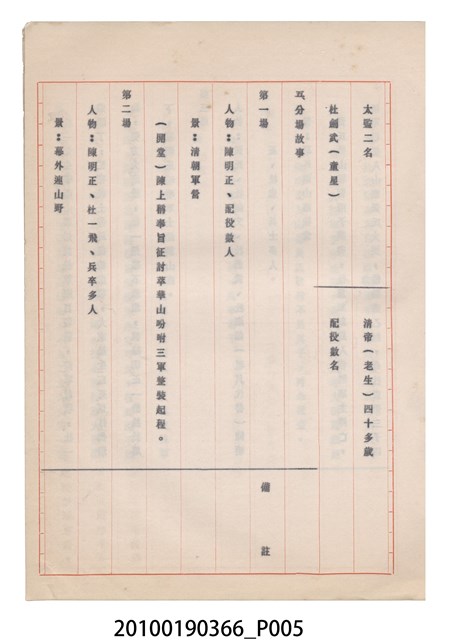 太監二名
清帝（老生）四十多歲
杜劍武（童星）
配役數名
五分場故事
第一場
備註
人物：陳明正、配役數人
景：清朝軍營
（開堂）陳上稱奉旨征討草華山吩咐三軍整裝起程。
第二場
人物：陳明正、杜一飛、兵卒多人
景：幕外連山野
20100190366_P005